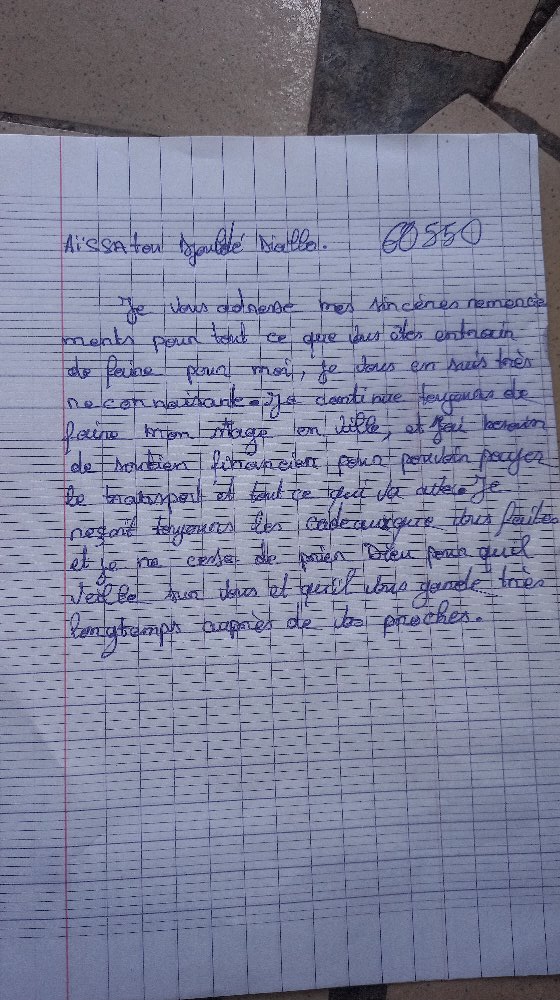 Aïssatou Djouldé Diallo. 60550
Je vous adresse mes sincères remercie
ments pour tout ce que vous êtes entrain
de faire pour moi, je vous en suis très
reconnaissante. Je continue toujours de
faire mon stage en ville, et j'ai besoin
de soutien financier pour pouvoir payer
le transport et tout ce qui va avec. Je
reçoit toujours les cadeaux que vous faites
et je ne cesse de prier Dieu pour quil
veille sur vous et qu'il vous garde très
longtemps auprès de vos proches.